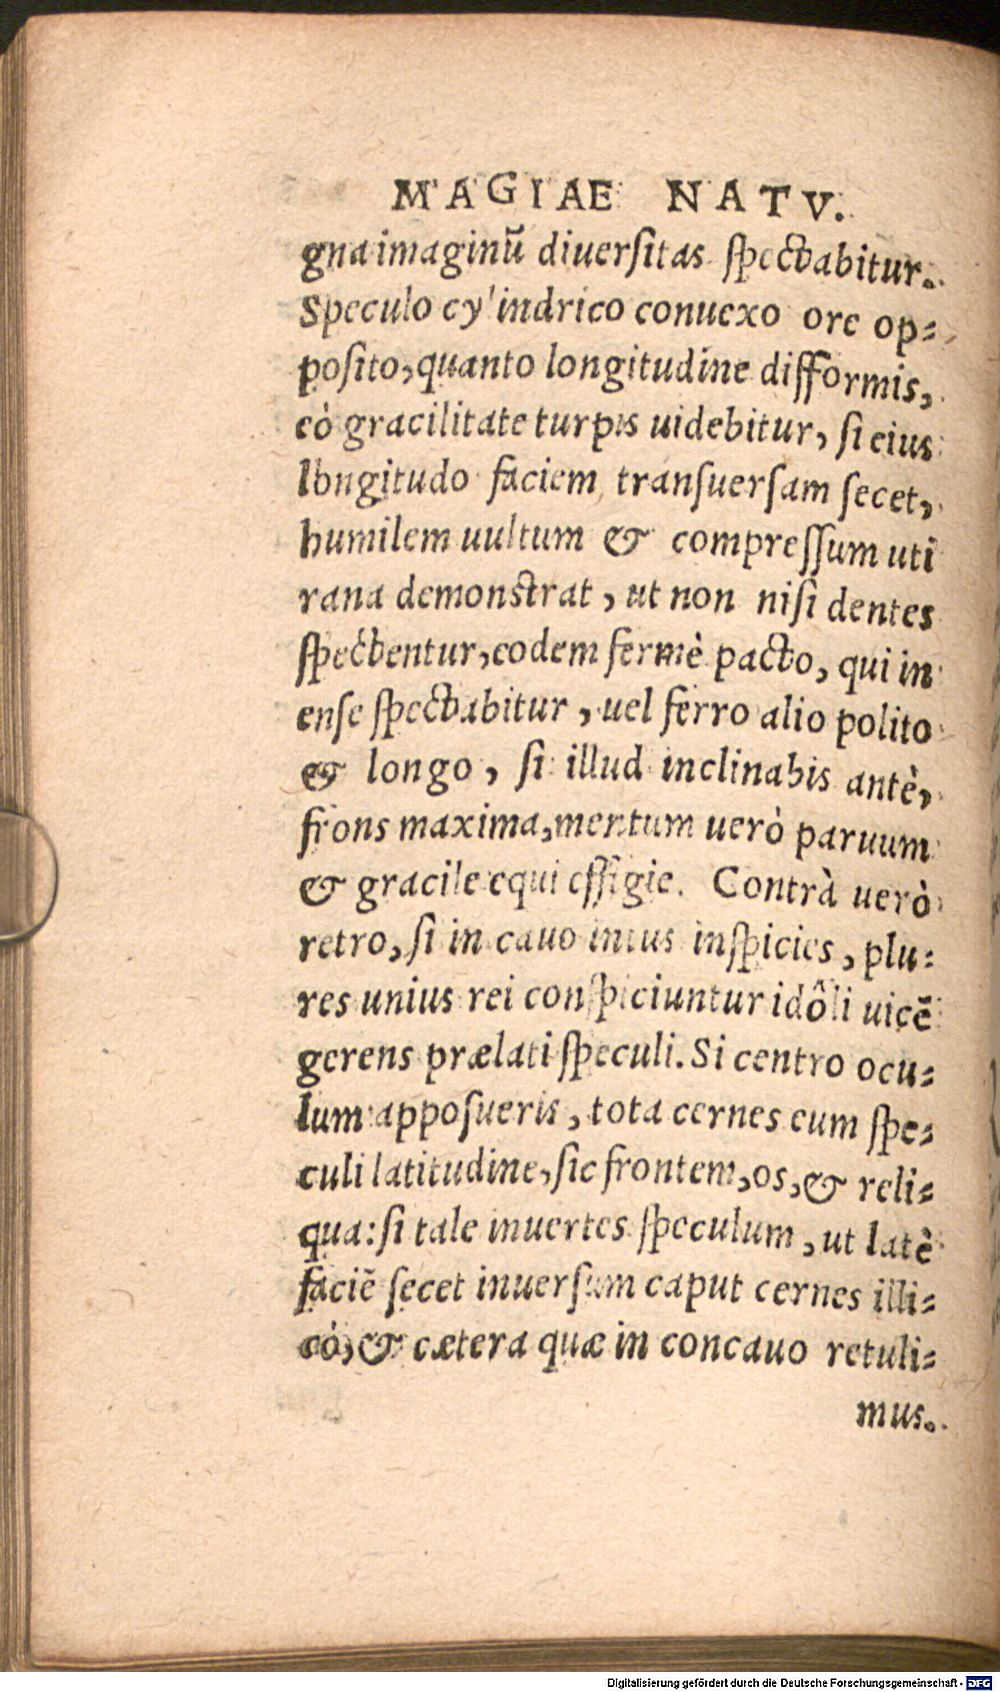 MAGIAE NATV.
gna imaginũ diuersitas spectabitur.
Speculo cylindrico conuexo ore op=
posito, quanto longitudine difformis,
eò gracilitate turpis uidebitur, si eius
longitudo faciem transuersam secet,
humilem uultum & compressum uti
rana demonstrat, ut non nisi dentes
spectentur, eodem fermè pacto, qui in
ense spectabitur, uel ferro alio polito
& longo, si illud inclinabis antè,
frons maxima, mentum uerò paruum
& gracile equi effigie. Contrà uerò
retro, si in cauo intus inspicies, plu=
res unius rei conspiciuntur idôli uicẽ
gerens prælati speculi. Si centro ocu=
lum apposueris, tota cernes cum spe=
culi latitudine, sic frontem, os, & reli=
qua: si tale inuertes speculum, ut latè
faciẽ secet inuersum caput cernes illi=
cò, & cætera quæ in concauo retuli=
mus.
Digitalisierung gefördert durch die Deutsche Forschungsgemeinschaft - DFG